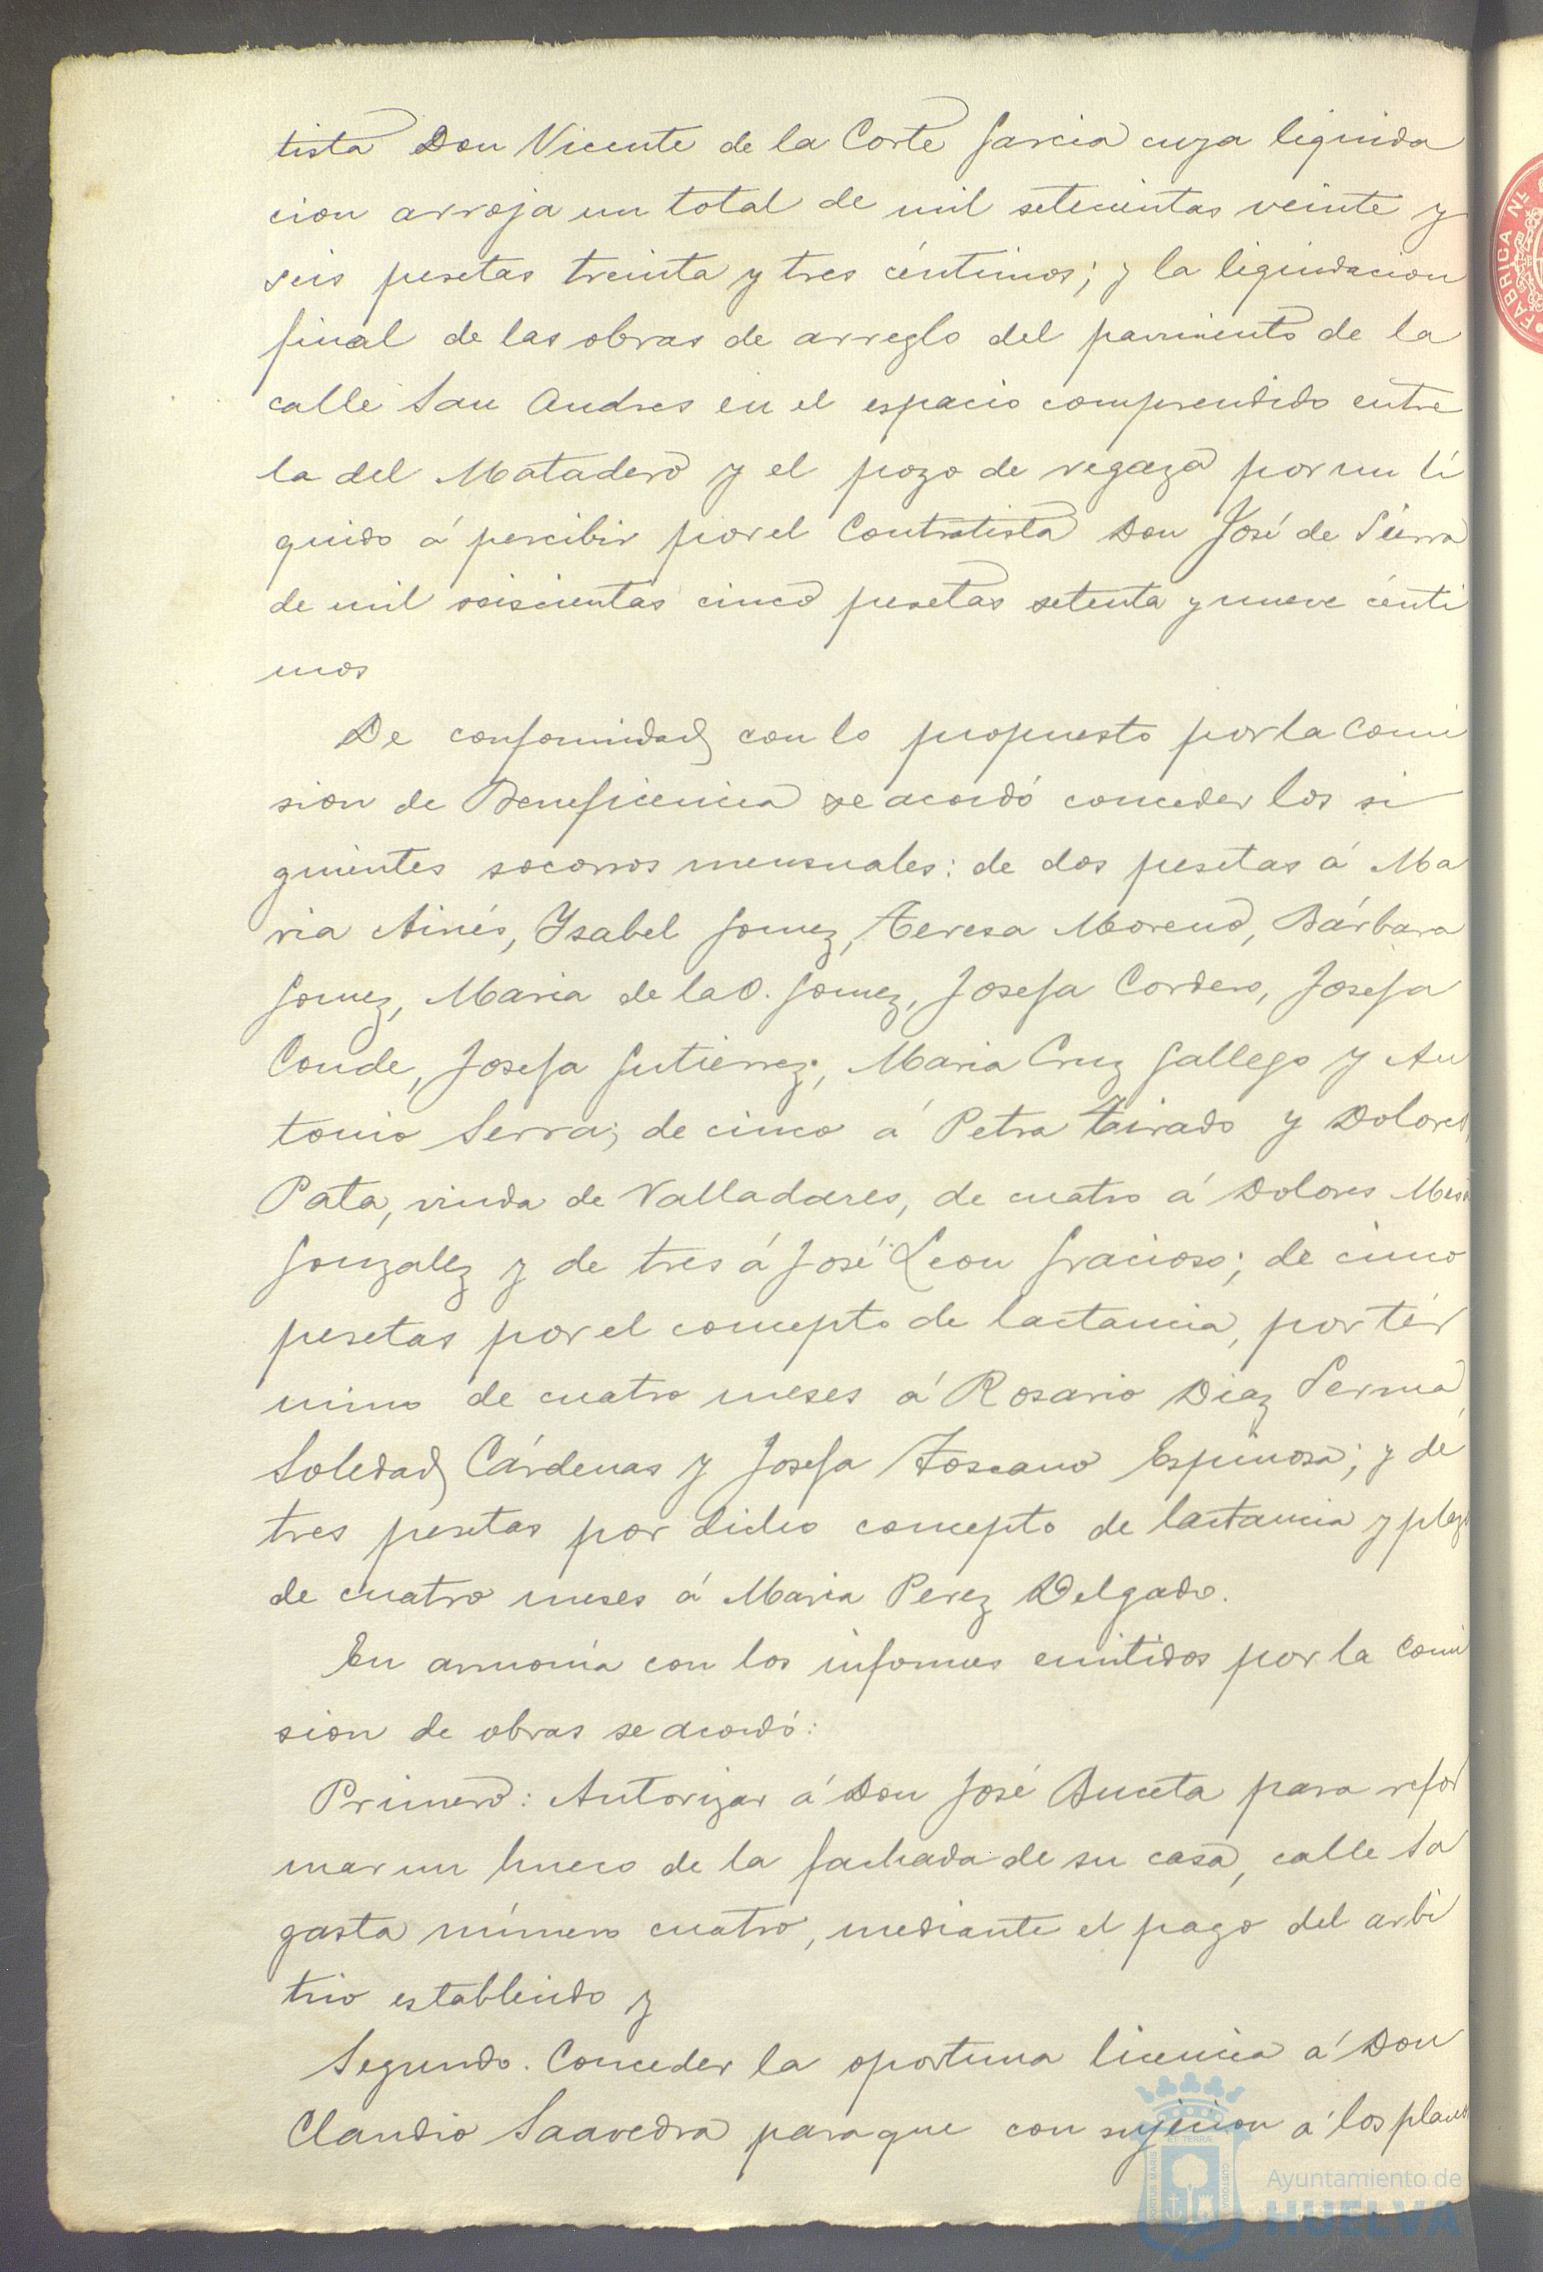 tista Don Vicente de la Corte Garcia cuya liquida
cion arroja un total de mil setecientas veinte y
seis pesetas treinta y tres céntimos; y la liquidacion
final de las obras de arreglo del pavimento de la
calle San Andres en el espacio comprendido entre
la del Matadero y el pozo de regaza por un lí
quido á percibir por el Contratista Don José de Sierra
de mil seiscientas cinco pesetas setenta y nueve cénti
mos
De conformidad con lo propuesto por la Comi
sion de Beneficencia se acordó conceder los si
guientes socorros mensuales: de dos pesetas á Ma
ria Ainés, Ysabel Gomez, Teresa Moreno, Bárbara
Gomez, Maria de la O. Gomez, Josefa Cordero, Josefa
Conde, Josefa Gutierrez, Maria Cruz Gallego y An
tonio Serra; de cinco á Petra Tirado y Dolores
Pata, viuda de Valladares, de cuatro á Dolores Mesa
Gonzalez y de tres á José Leon Gracioso; de cinco
pesetas por el concepto de lactancia, por tér
mino de cuatro meses á Rosario Diaz Serma,
Soledad Cárdenas y Josefa Toscano Espinosa; y de
tres pesetas por dicho concepto de lactancia y plazo
de cuatro meses á Maria Perez Delgado.
En armonía con los informes emitidos por la Comi
sion de obras se acordó:
Primero: Autorizar á Don José Buceta para refor
mar un hueco de la fachada de su casa, calle Sa
gasta número cuatro, mediante el pago del arbi
trio establecido y
Segundo. Conceder la oportuna licencia á Don
Claudio Saavedra para que con sujecion á los planos
FABRICA N
Ayuntamiento de
HUELVA